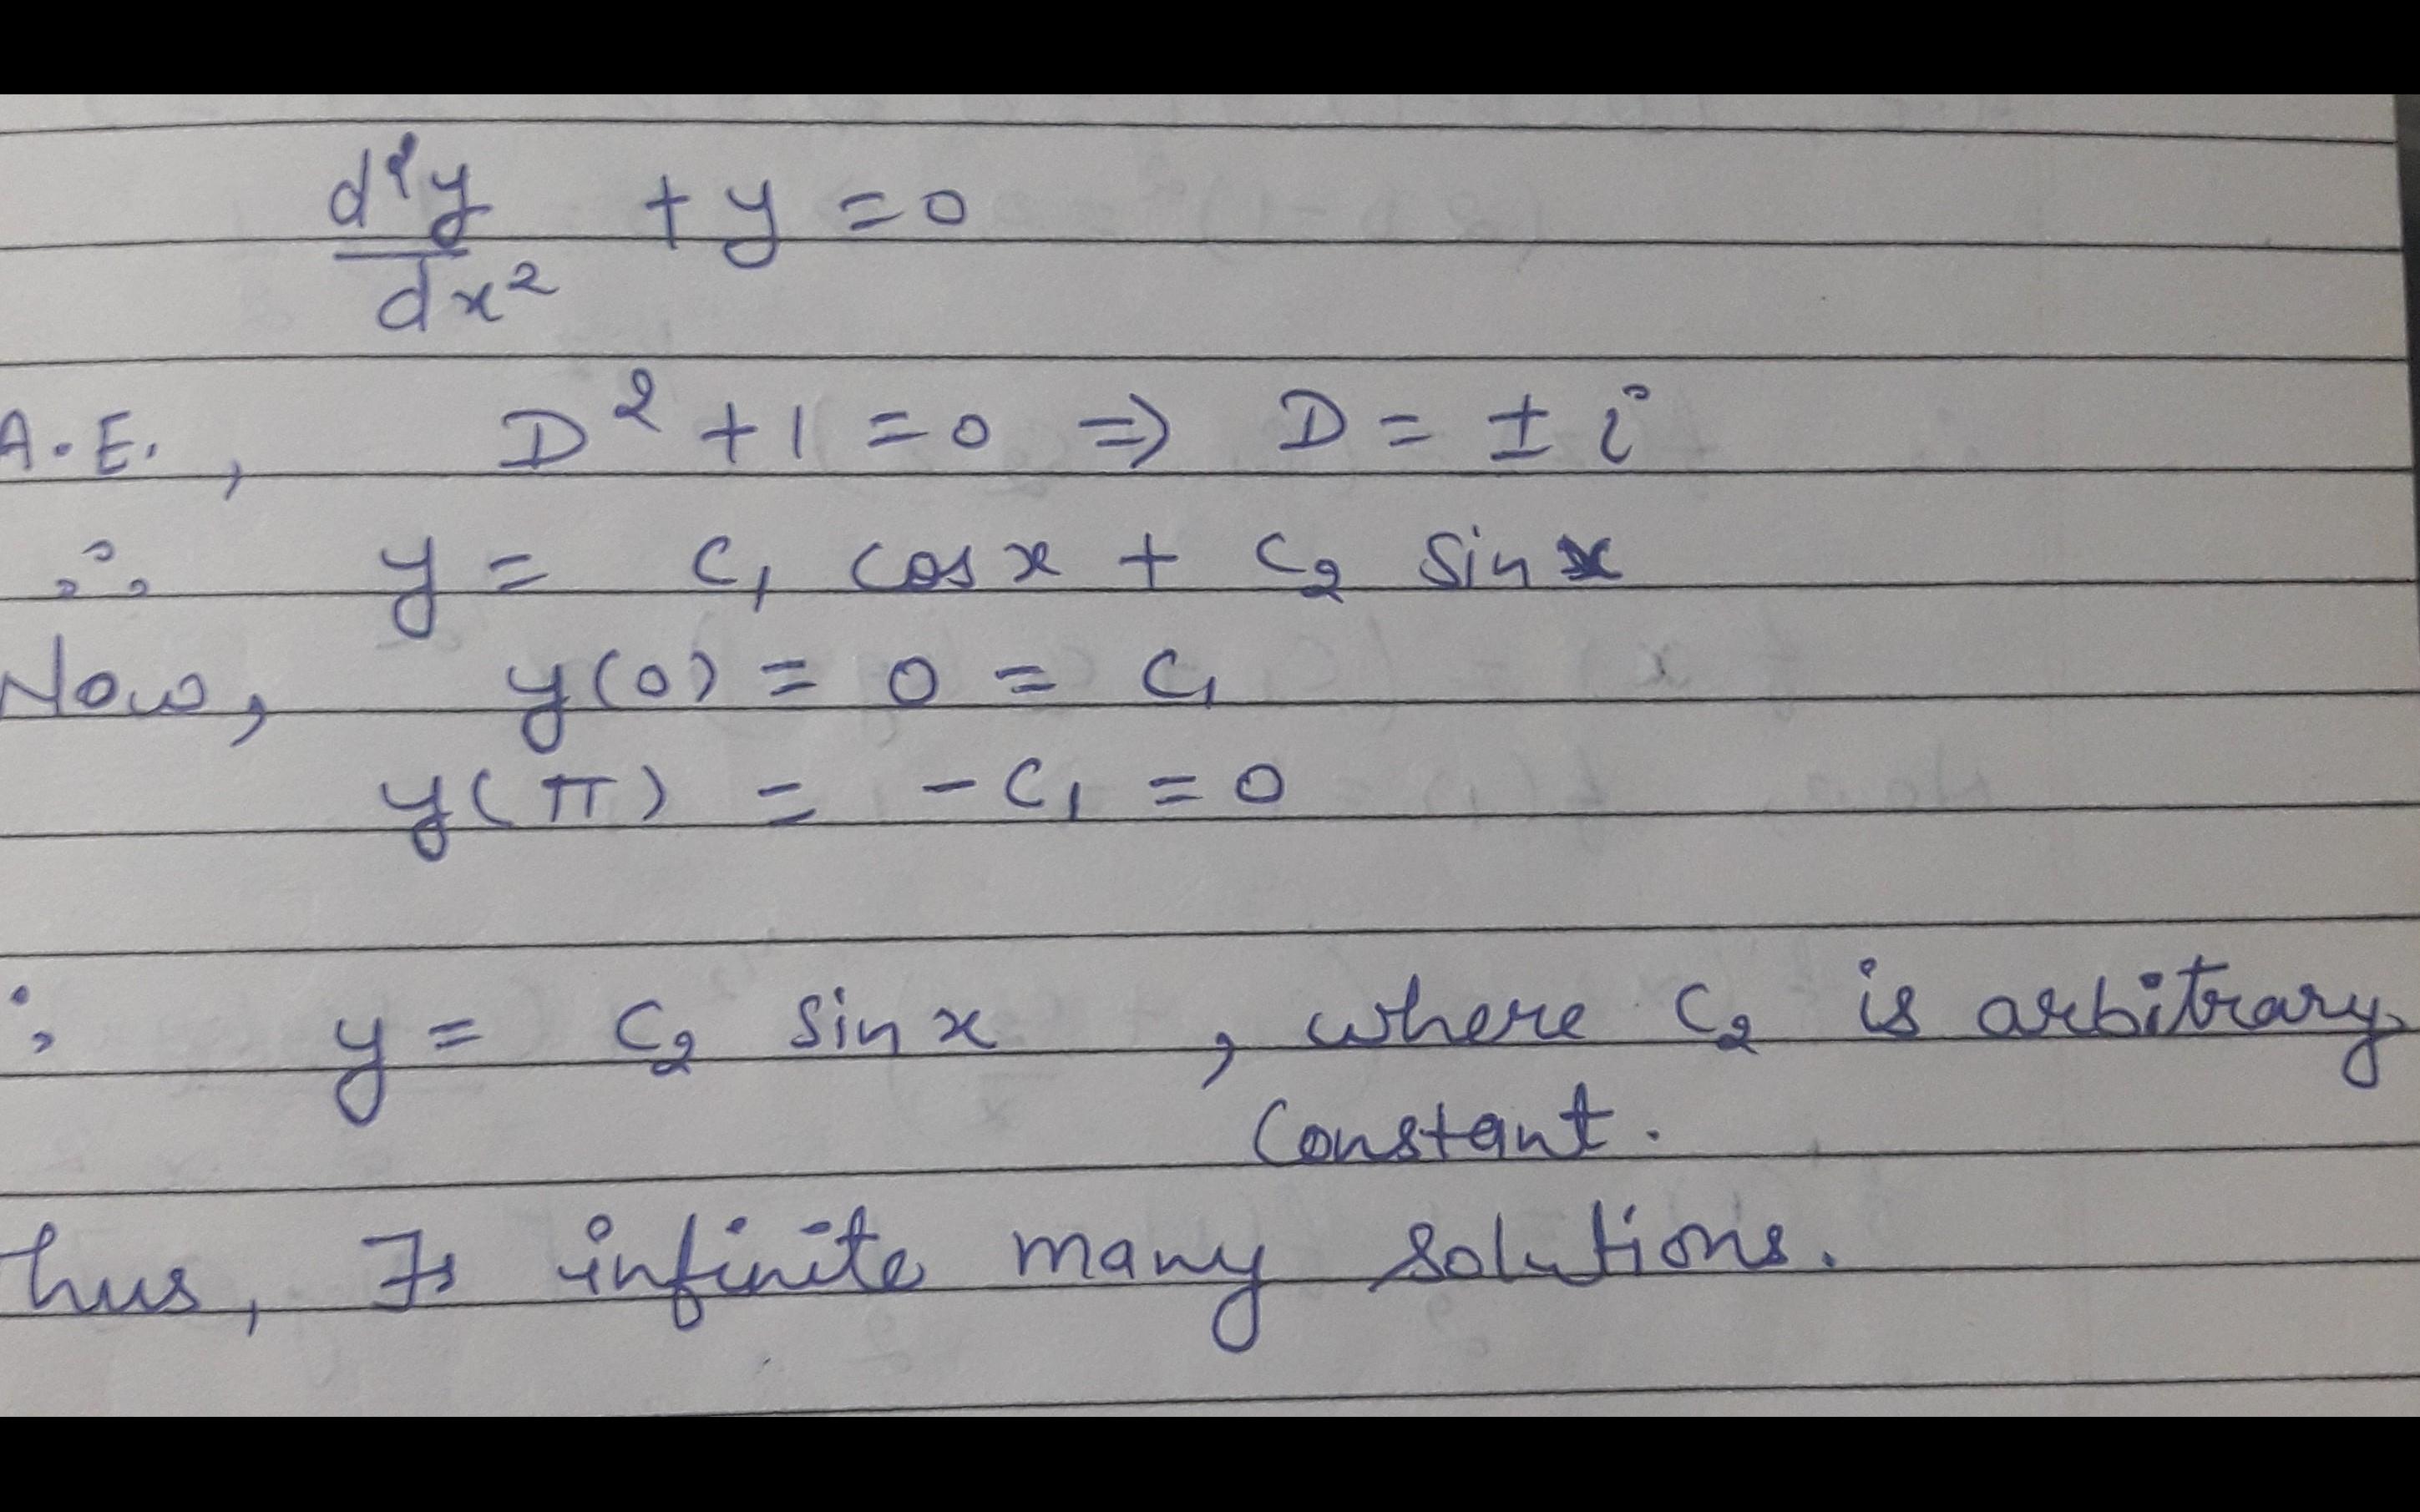 d²y/dx² + y = 0
A.E., D² + 1 = 0 ⇒ D = ± i
∴ y = c₁ cos x + c₂ sin x
Now, y(0) = 0 = c₁
y(π) = -c₁ = 0
∴ y = c₂ sin x, where c₂ is arbitrary
constant.
hus, ∃s infinite many solutions.